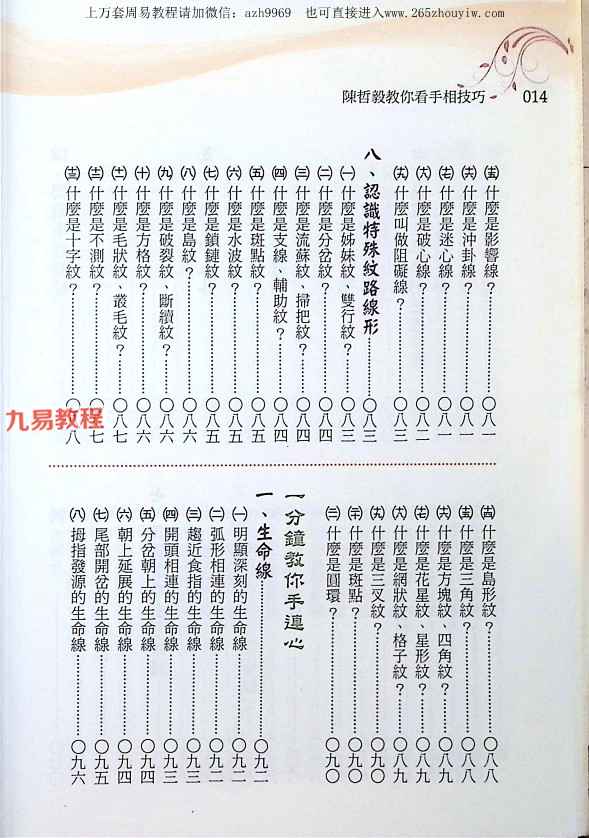 上万套周易教程请加微信：azh9969 也可直接进入www.265zhouyiw.com
陳哲毅教你看手相技巧 014
(十五)什麼是影響線？……○八一
(十六)什麼是沖卦線？……○八一
(十七)什麼是迷心線？……○八一
(十八)什麼是破心線？……○八二
(十九)什麼叫做阻礙線？……○八三
八、認識特殊紋路線形……○八三
(一)什麼是姊妹紋、雙行紋？……○八三
(二)什麼是分岔紋？……○八四
(三)什麼是流蘇紋、掃把紋？……○八四
(四)什麼是支線、輔助紋？……○八四
(五)什麼是斑點紋？……○八五
(六)什麼是水波紋？……○八五
(七)什麼是鎖鏈紋？……○八五
(八)什麼是島紋？……○八六
(九)什麼是破裂紋、斷續紋？……○八六
(十)什麼是方格紋？……○八六
(十一)什麼是毛狀紋、叢毛紋？……○八七
(十二)什麼是不測紋？……○八七
(十三)什麼是十字紋？……○八八
九易教程
(十四)什麼是島形紋？……○八八
(十五)什麼是三角紋？……○八八
(十六)什麼是方塊紋、四角紋？……○八九
(十七)什麼是花星紋、星形紋？……○八九
(十八)什麼是網狀紋、格子紋？……○八九
(十九)什麼是三叉紋？……○九○
(二十)什麼是斑點？……○九○
什麼是圓環？……○九○
一分鐘教你手連心
一、生命線……○九二
(一)明顯深刻的生命線……○九二
(二)弧形相連的生命線……○九二
(三)趨近食指的生命線……○九三
(四)開頭相連的生命線……○九三
(五)分岔朝上的生命線……○九四
(六)朝上延展的生命線……○九四
(七)尾部開岔的生命線……○九五
(八)拇指發源的生命線……○九六